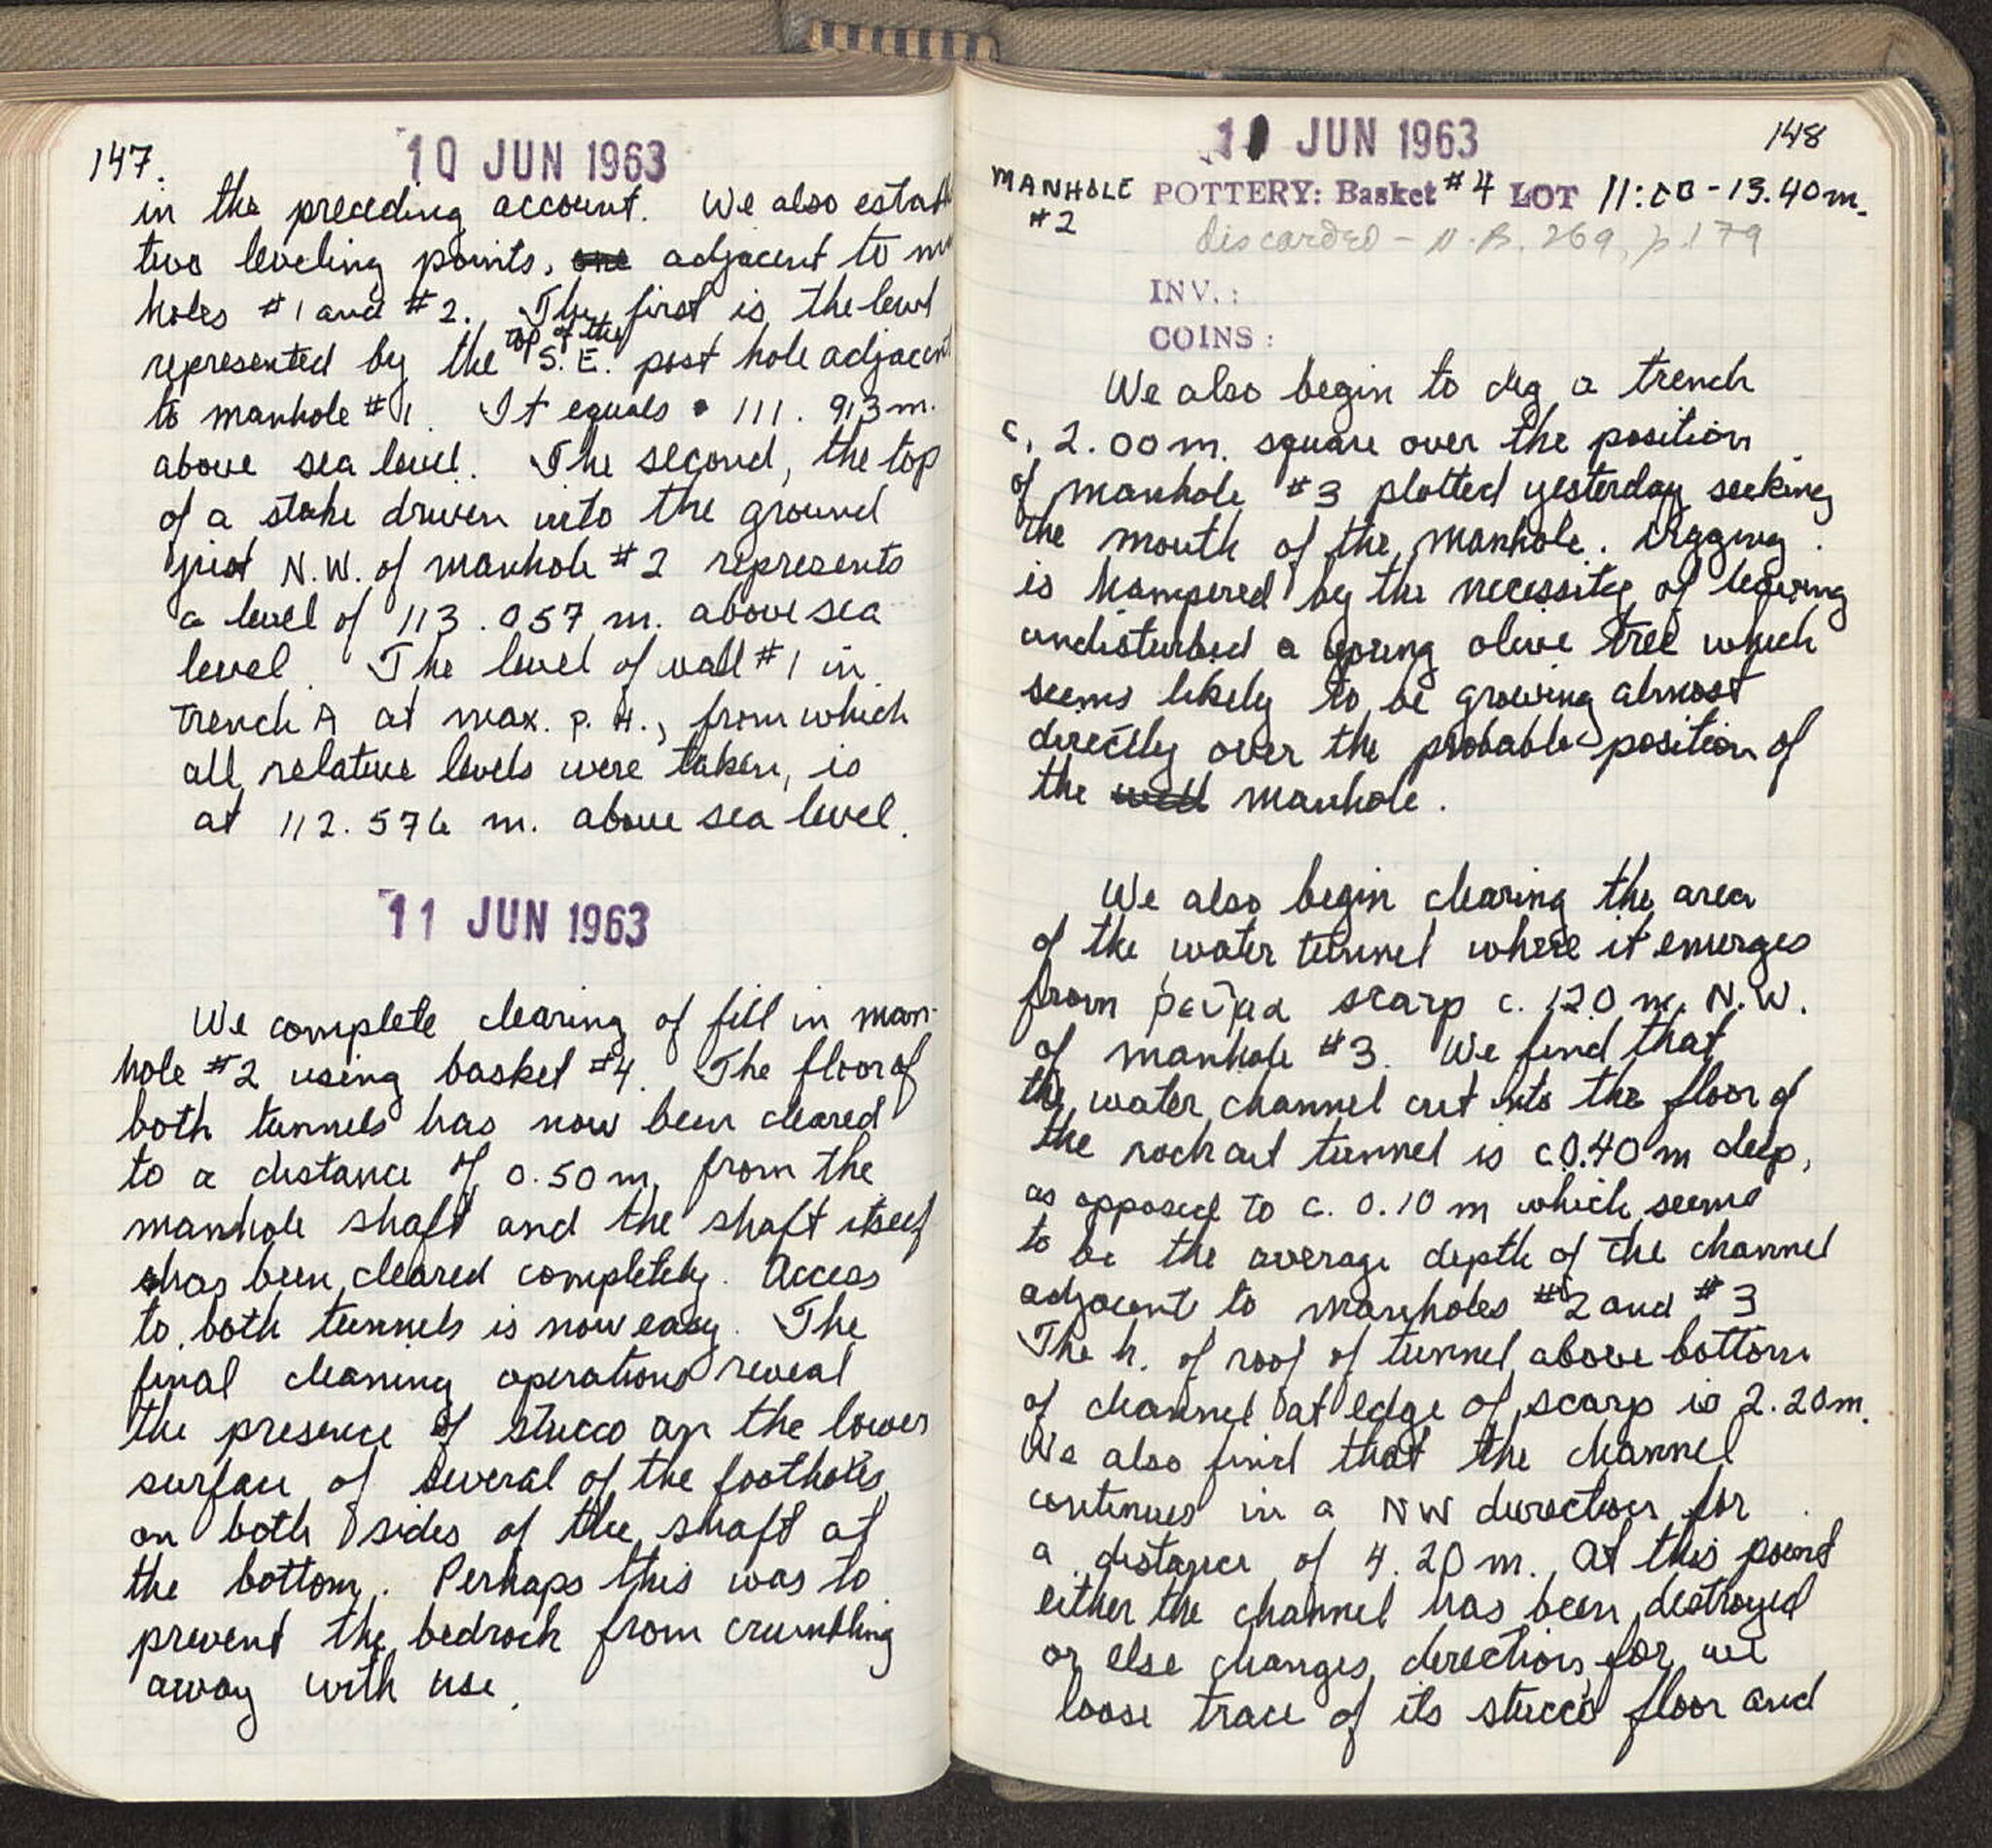 147.
10 JUN 1963
in the preceding account. We also estab
two leveling points, one adjacent to m
holes #1 and #2. The first is the level
represented by the top of the S.E. post hole adjacent
to manhole #1. It equals 111.913 m.
above sea level. The second, the top
of a stake driven into the ground
just N.W. of manhole #2 represents
a level of 113.057 m. above sea
level. The level of wall #1 in
trench A at max. p. H., from which
all relative levels were taken, is
at 112.576 m. above sea level.
11 JUN 1963
We complete clearing of fill in man-
hole #2 using basket #4. The floor of
both tunnels has now been cleared
to a distance of 0.50 m. from the
manhole shaft and the shaft itself
has been cleared completely. Access
to both tunnels is now easy. The
final cleaning operations reveal
the presence of stucco on the lower
surface of several of the footholes
on both sides of the shaft at
the bottom. Perhaps this was to
prevent the bedrock from crumbling
away with use.
11 JUN 1963
148
MANHOLE POTTERY: Basket #4 LOT 11:00 - 13.40 m.
#2
discarded - N.B. 269, p.179
INV. :
COINS :
We also begin to dig a trench
c. 2.00 m. square over the position
of manhole #3 plotted yesterday seeking
the mouth of the manhole. Digging
is hampered by the necessity of leaving
undisturbed a young olive tree which
seems likely to be growing almost
directly over the probable position of
the well manhole.
We also begin clearing the area
of the water tunnel where it emerges
from ρεῦμα scarp c. 120 m. N.W.
of manhole #3. We find that
the water channel cut into the floor of
the rock cut tunnel is c 0.40 m deep,
as opposed to c. 0.10 m which seems
to be the average depth of the channel
adjacent to manholes #2 and #3
The h. of roof of tunnel above bottom
of channel at edge of scarp is 2.20 m.
We also find that the channel
continues in a NW direction for
a distance of 4.20 m. At this point
either the channel has been destroyed
or else changes direction, for we
loose trace of its stucco floor and